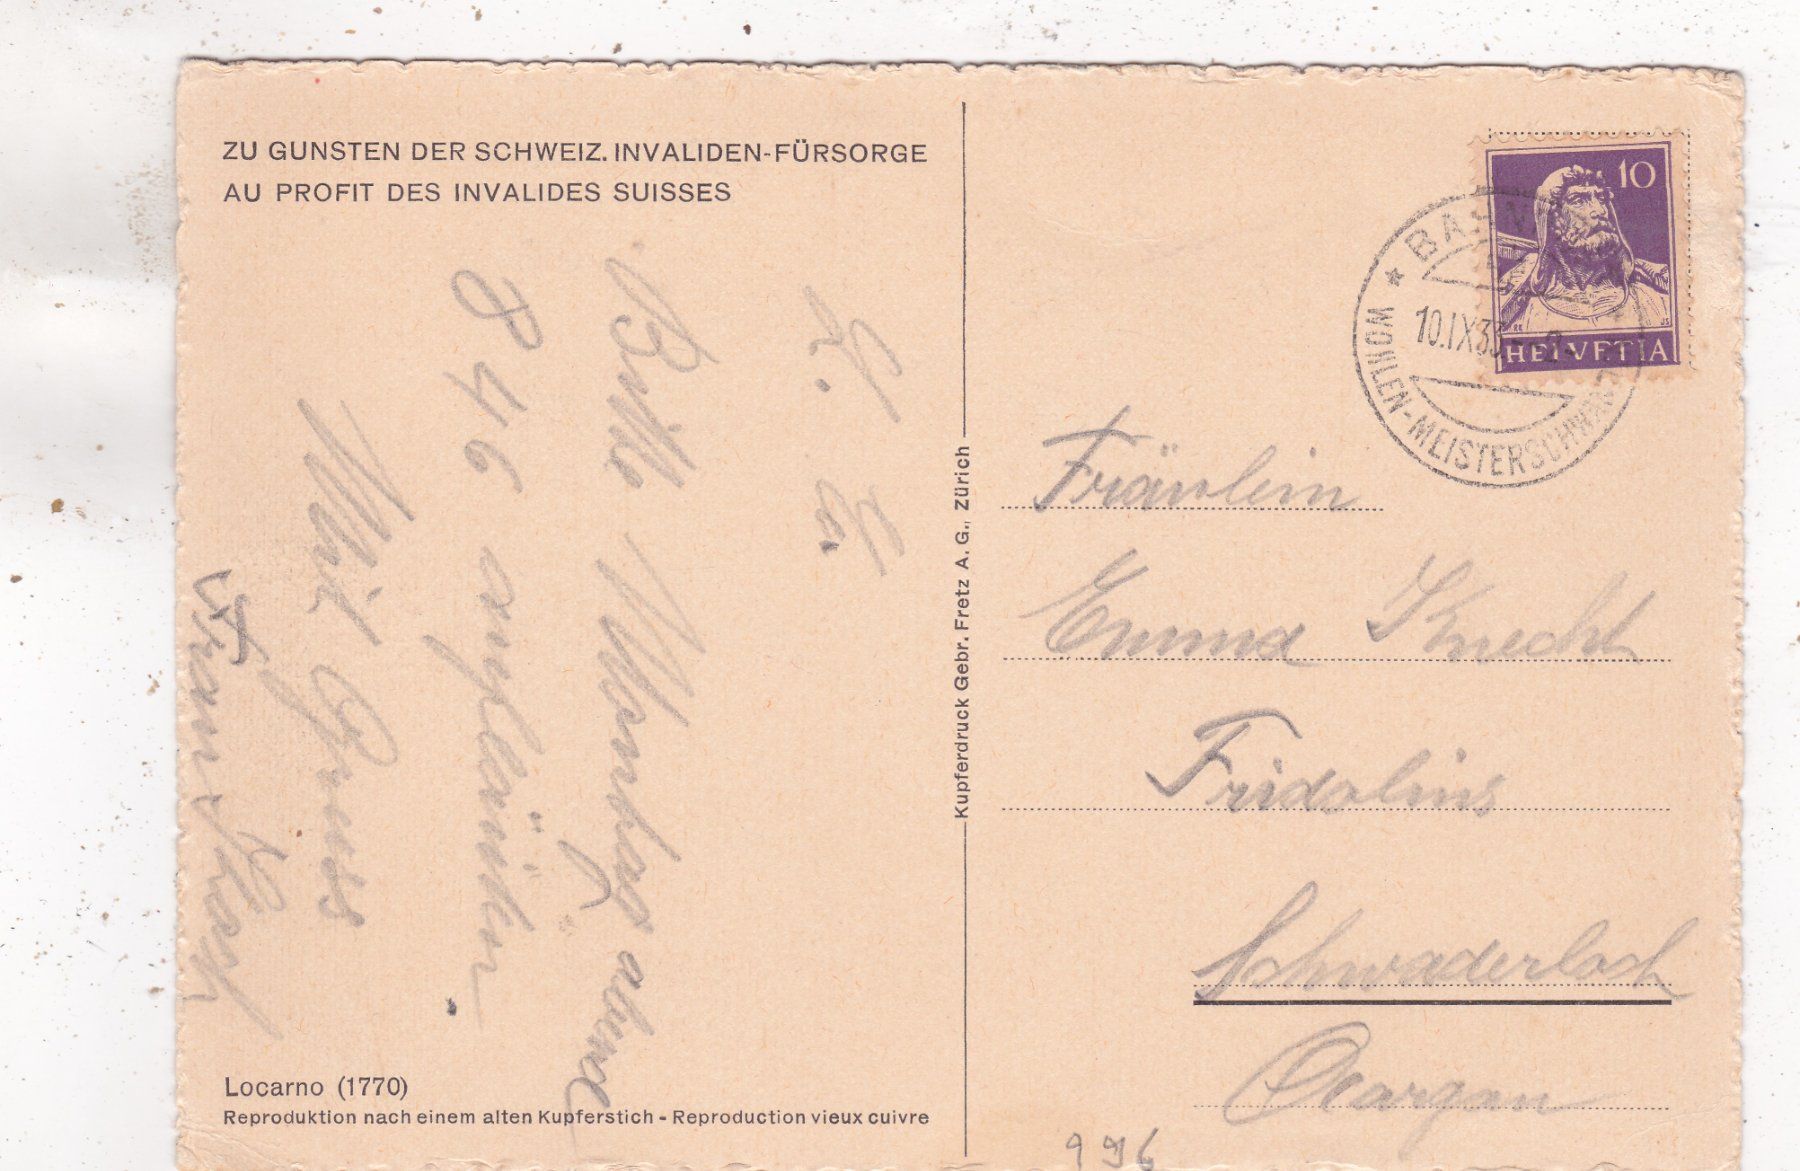 ZU GUNSTEN DER SCHWEIZ. INVALIDEN-FÜRSORGE
AU PROFIT DES INVALIDES SUISSES
Bitte Montag abend
8 46 aufläuten
Mit Gruss
Frau
Locarno (1770)
Reproduktion nach einem alten Kupferstich - Reproduction vieux cuivre
Kupferdruck Gebr. Fretz A. G., Zürich
10
HELVETIA
10.IX.33
WOHLEN-MEISTERSCHWAND
Fräulein
Emma Knecht
Fridolins
Schwaderloch
Aargau
996